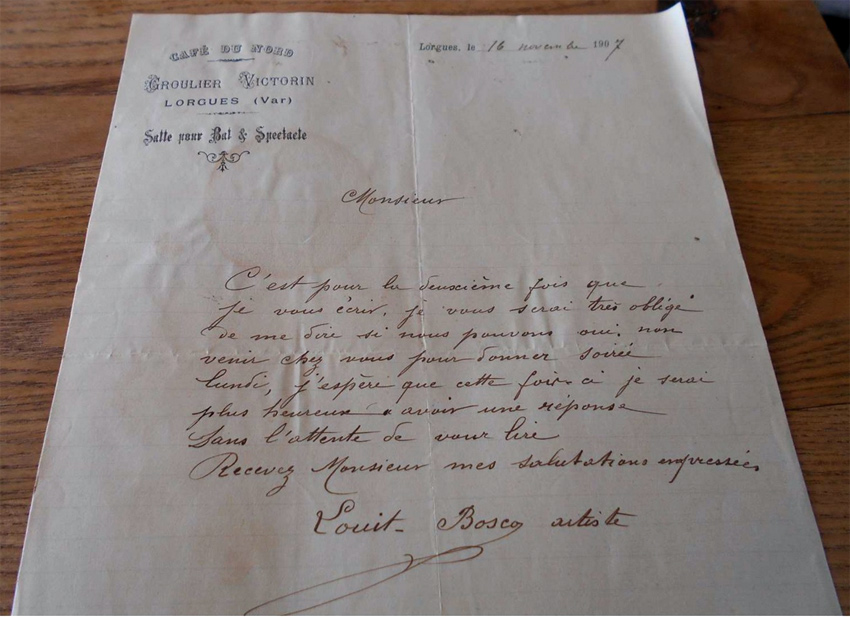 CAFÉ DU NORD
GROULIER VICTORIN
LORGUES (Var)
Salle pour Bal & Spectacle
Lorgues, le 16 novembre 1907
Monsieur
C'est pour la deuxième fois que
je vous écrir. je vous serai très obligé
de me dire si nous pouvons oui. non
venir chez vous pour donner soirée
lundi, j'espère que cette fois-ci je serai
plus heureux a avoir une réponse
Dans l'attente de vour lire
Recevez Monsieur mes salutations empressées
Louit- Bosco artiste